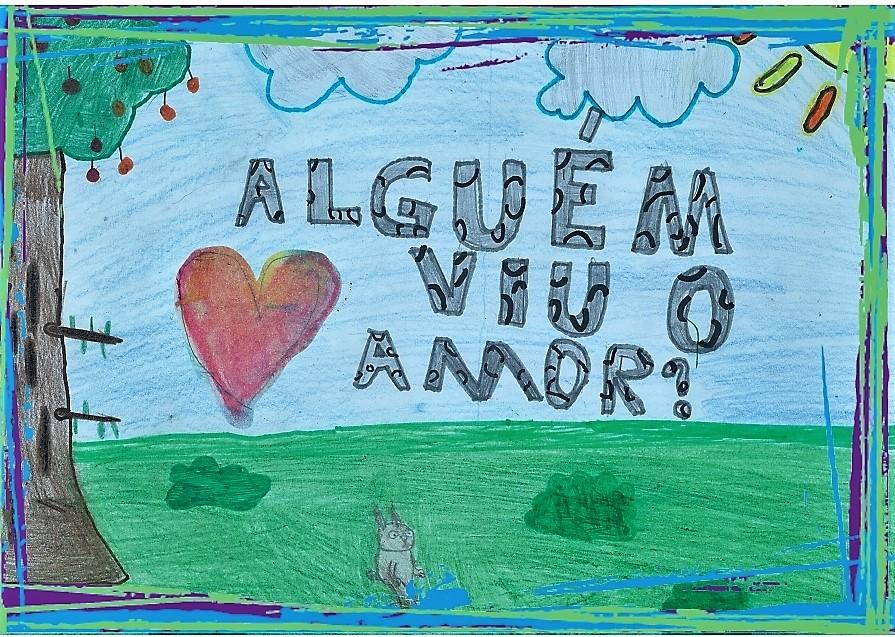 ALGUÉM
VIU O
AMOR?